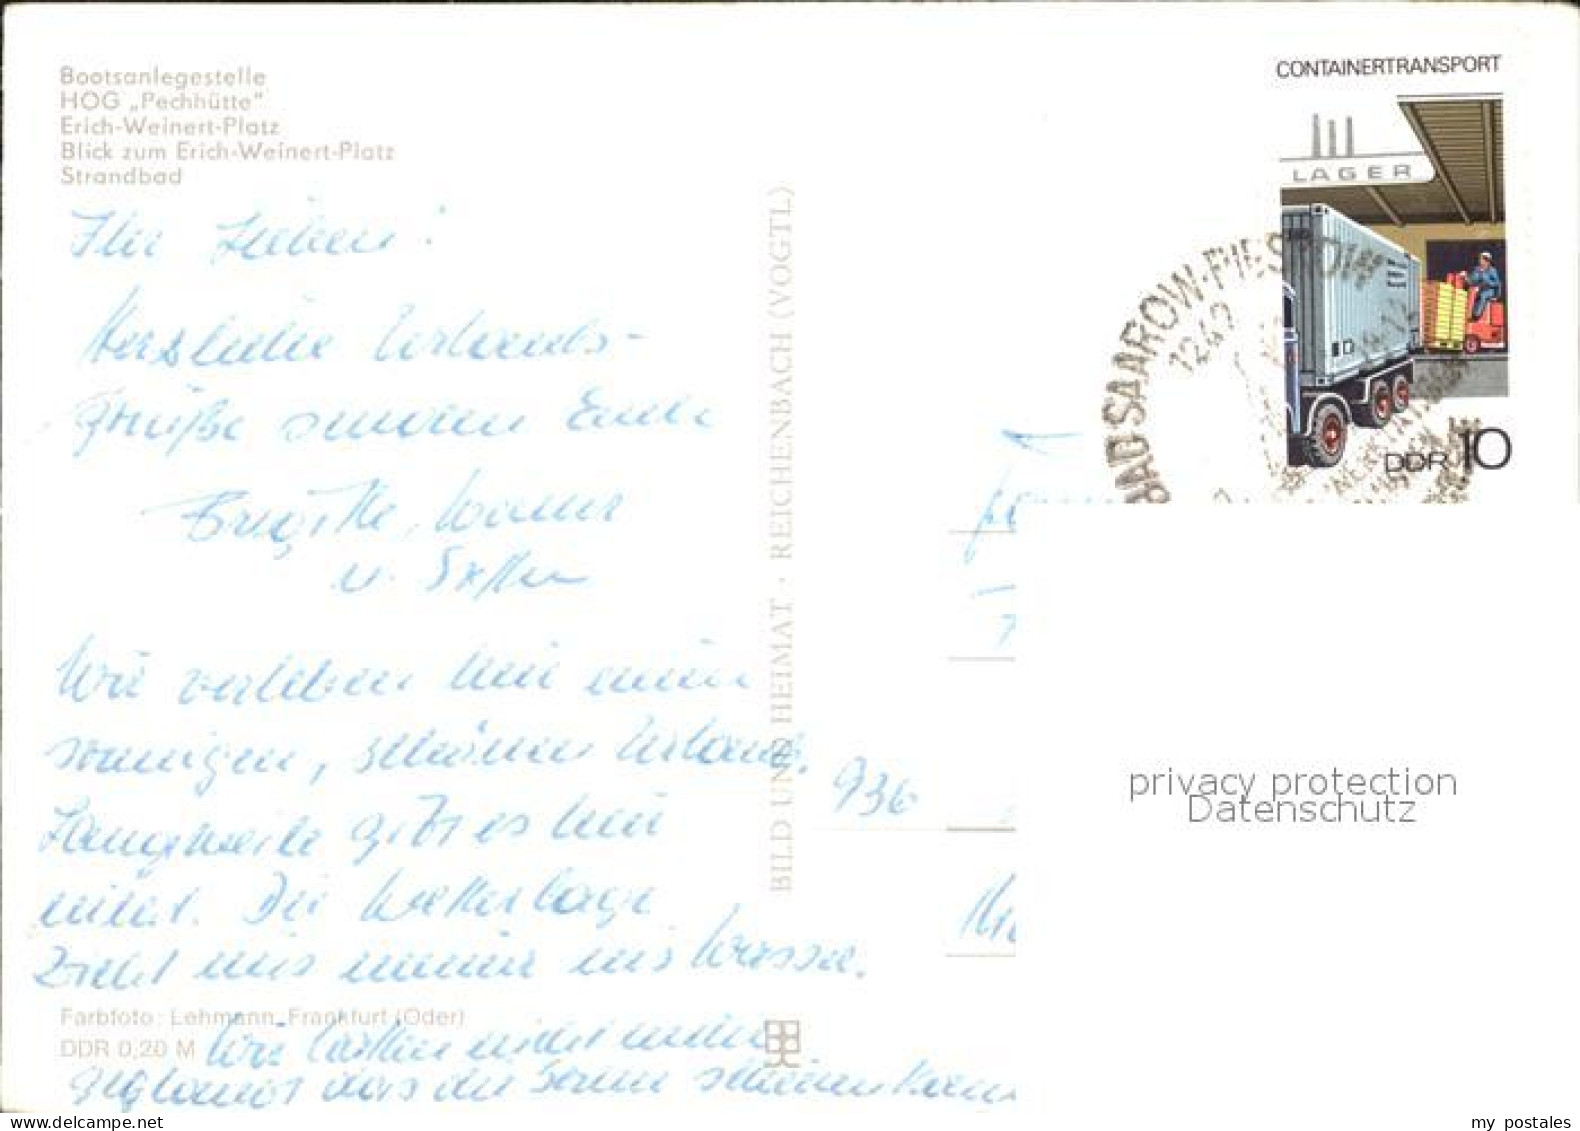 Bootsanlegestelle
HOG „Pechhütte"
Erich-Weinert-Platz
Blick zum Erich-Weinert-Platz
Strandbad
Ihr Lieben!
Herzliche Urlaubs-
grüße senden Euch
Brigitte,
u.
Wir verleben hier einen
sonnigen, schönen Urlaub.
Langeweile gibt es hier
nicht. Die Wetterlage
zieht uns immer ins Wasser.
Wir hätten nicht mehr
geglaubt das die Sonne scheinen kann
Farbfoto: Lehmann, Frankfurt (Oder)
DDR 0,20 M
BILD UND HEIMAT · REICHENBACH (VOGTL)
CONTAINERTRANSPORT
LAGER
DDR 10
BAD SAAROW-PIESKOW
1242
936
privacy protection
Datenschutz
my postales